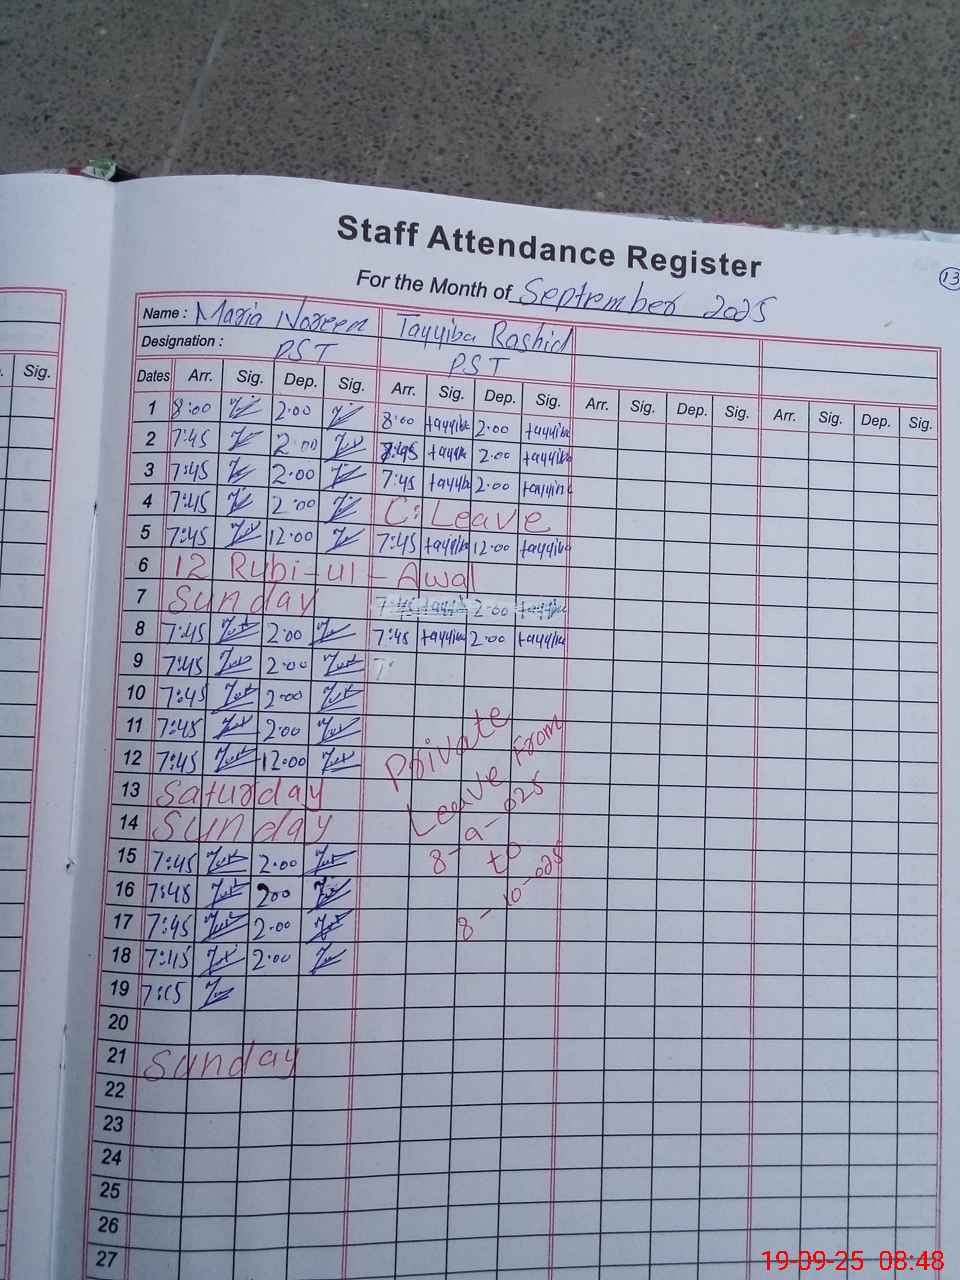 Staff Attendance Register
13
For the Month of September 2025
Name : Maria Noreen Tayyiba Rashid
Designation : PST PST
. Sig. Dates Arr. Sig. Dep. Sig. Arr. Sig. Dep. Sig. Arr. Sig. Dep. Sig. Arr. Sig. Dep. Sig.
1 8:00 2:00 8:00 tayyiba 2:00 tayyiba
2 7:45 2:00 7:45 tayyiba 2:00 tayyiba
3 7:45 2:00 7:45 tayyiba 2:00 tayyiba
4 7:45 2:00 C: Leave
5 7:45 12:00 7:45 tayyiba 12:00 tayyiba
6 12 Rubi-ul-Awal
7 Sunday 7:45 tayyiba 2:00 tayyiba
8 7:45 2:00 7:45 tayyiba 2:00 tayyiba
9 7:45 2:00 7:
10 7:45 2:00
11 7:45 2:00
12 7:45 12:00
Private
Leave From
8-9-025
to
8-10-025
13 Saturday
14 Sunday
15 7:45 2:00
16 7:45 2:00
17 7:45 2:00
18 7:45 2:00
19 7:45
20
21 Sunday
22
23
24
25
26
27
19-09-25 08:48